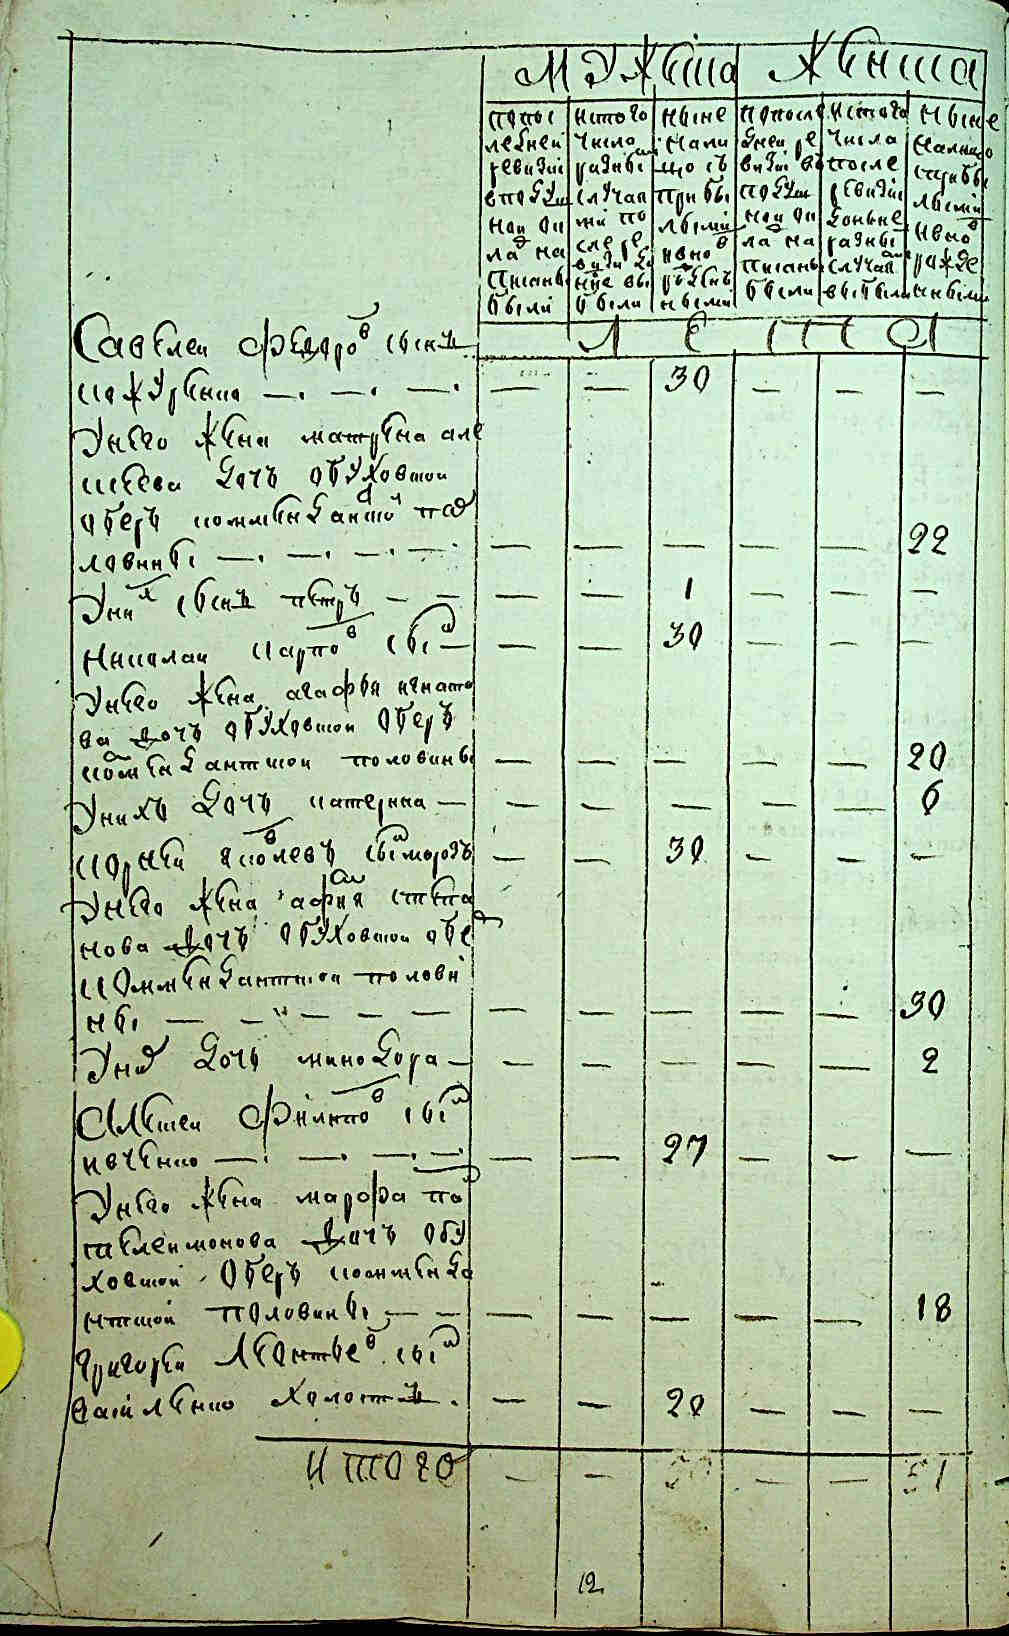 МУЖЕСКА ЖЕНСКА
по последней ревизии в подушной оклад написаны были
ис того числа разными случаями после ревизии до ныне выбыли
ныне на лицо с прибылыми и вновь рожденными
по последней ревизии в подушной оклад написаны были
ис того числа после ревизии до ныне разными случаями выбыли
ныне на лицо с прибылыми и вновь рожденными
ЛЕТА
Савелей Федоров сынъ
кожуренко — — — — — 30 — — —
У него жена матрена але
ксеева дочь обуховской
оберъ комменданской пол
ловины — — — — — — — — — 22
У них сынъ петръ — — — — 1 — — —
Николай карпов сын — — — 30 — — —
У него жена агафья игнато
ва дочь обуховской оберъ
комендантской половины — — — — — 20
У нихъ дочь катерина — — — — — — 6
Корней яковлевъ сын морозъ — — 30 — — —
У него жена афимья степа
нова дочь обуховской обер
комменданткой полови
ны — — — — — — — — — — 30
У них дочь минодора — — — — — — 2
Алексей Филипов сын
ивченко — — — — — — 27 — — —
У него жена марфа по
теклеимонова дочь обу
ховской оберъ комменда
нтской половины — — — — — — — 18
Григорей Леонтьев сын
василенко холостъ — — 20 — — —
Итого — — — — 51
12